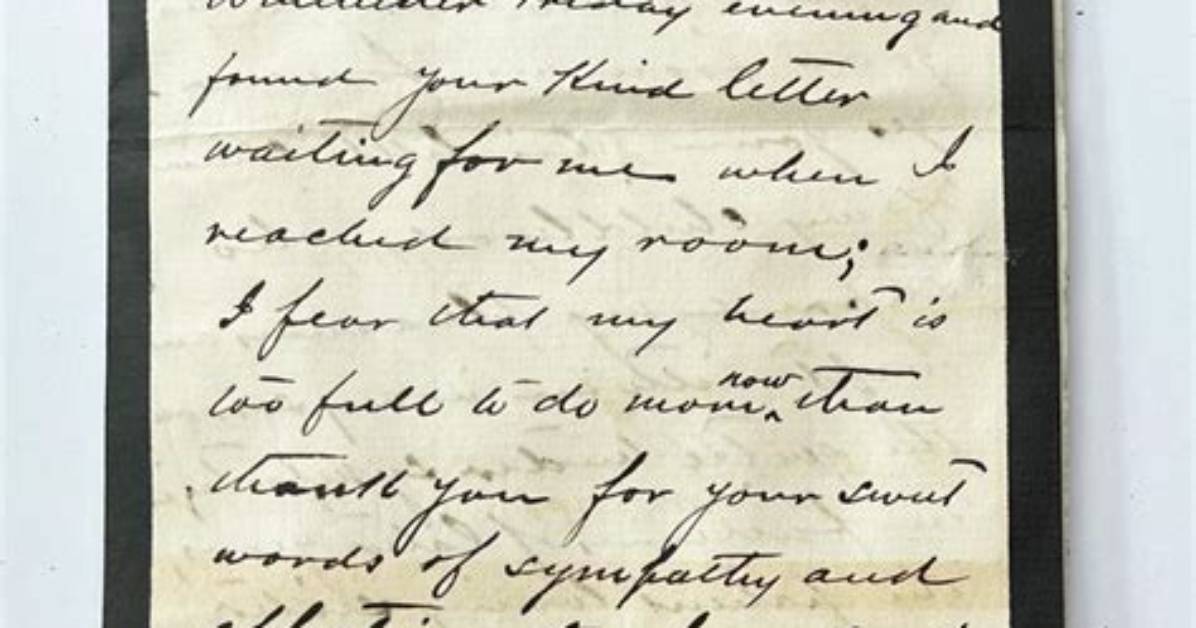 Friday evening and
found your kind letter
waiting for me when I
reached my room;
I fear that my heart is
too full to do more now than
thank you for your sweet
words of sympathy and